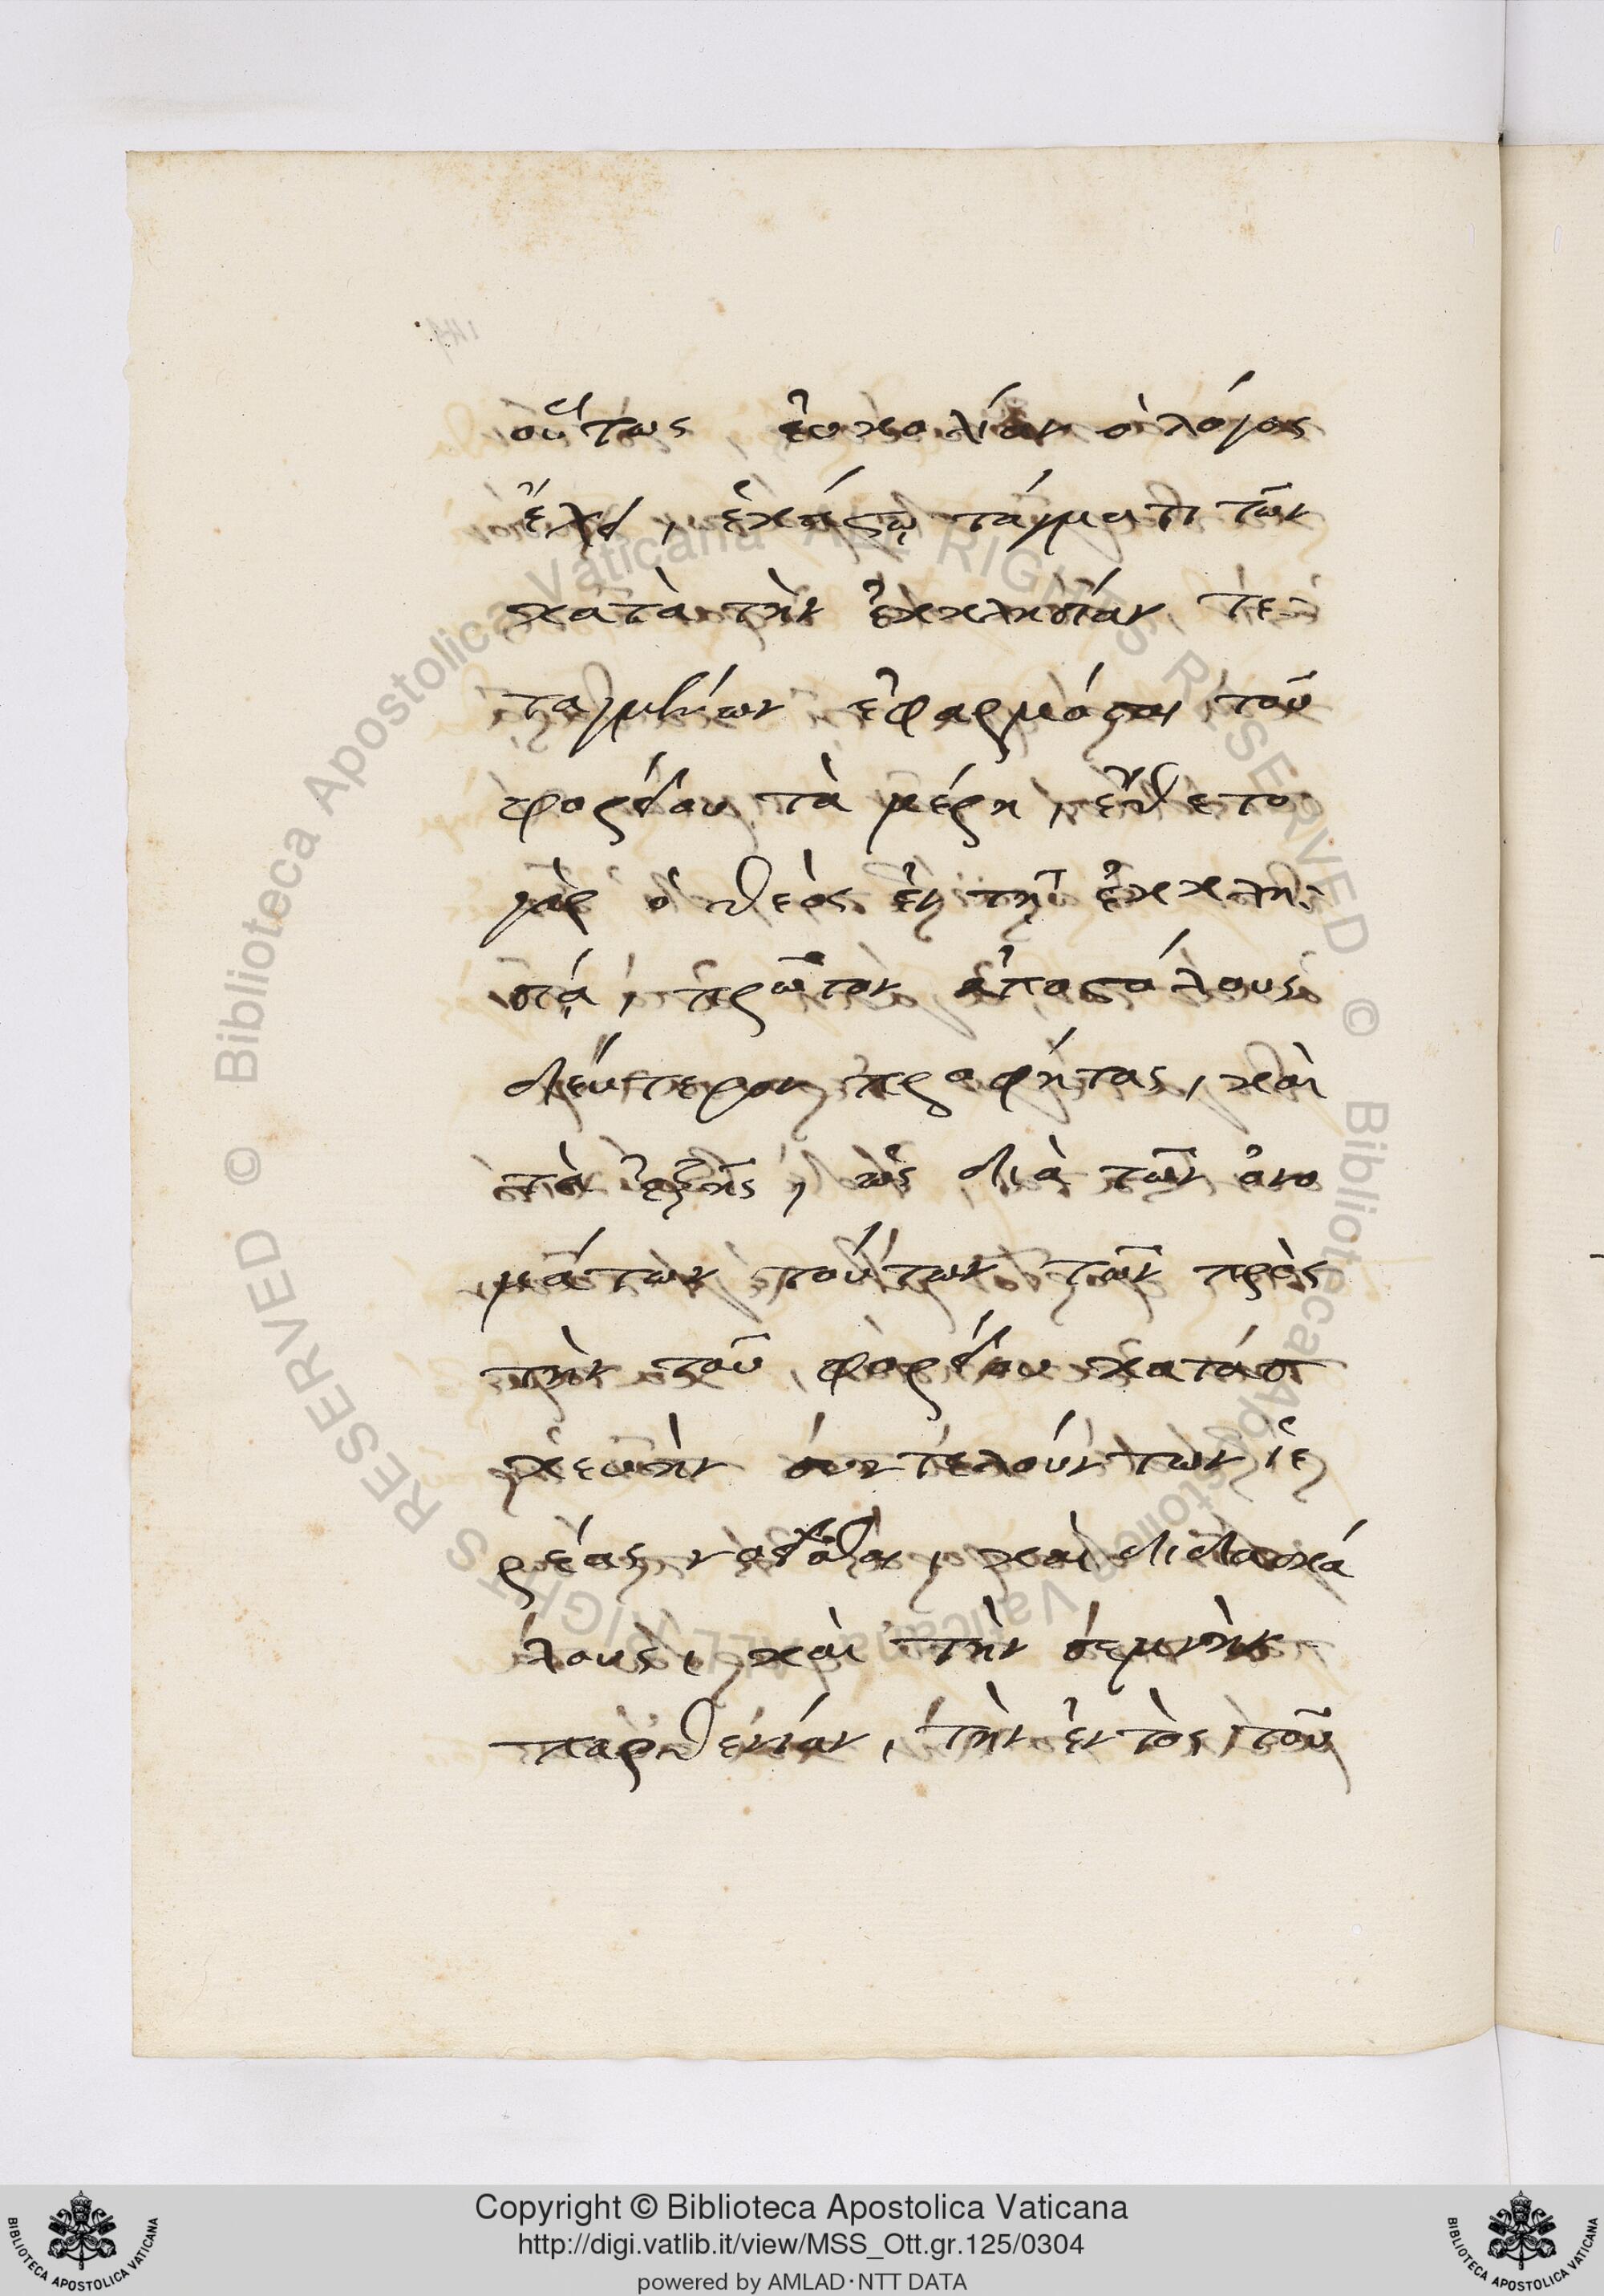 οὕτως εὐκολίαν ὁ λόγος
ἔχει, ἑκάστῳ τάγματι τῶν
κατὰ τὴν ἐκκλησίαν τε-
ταγμένων ἐφαρμόσαι τοῦ
φορείου τὰ μέρη, ἔθετο
γὰρ ὁ θεὸς ἐν τῇ ἐκκλη-
σίᾳ, πρῶτον ἀποστόλους
δεύτερον προφήτας, καὶ
τὰ ἑξῆς, ὡς διὰ τῶν ὀνο
μάτων τούτων τῶν πρὸς
τὴν τοῦ φορείου κατασ
κευὴν συντελούντων ἱε
ρέας νοεῖσθαι, καὶ διδασκά
λους, καὶ τὴν σεμνὴν
παρθενίαν, τὴν ἐντὸς τοῦ
Copyright © Biblioteca Apostolica Vaticana
http://digi.vatlib.it/view/MSS_Ott.gr.125/0304
powered by AMLAD·NTT DATA
© Biblioteca Apostolica Vaticana ALL RIGHTS RESERVED
© Biblioteca Apostolica Vaticana ALL RIGHTS RESERVED
BIBLIOTECA APOSTOLICA VATICANA
BIBLIOTECA APOSTOLICA VATICANA